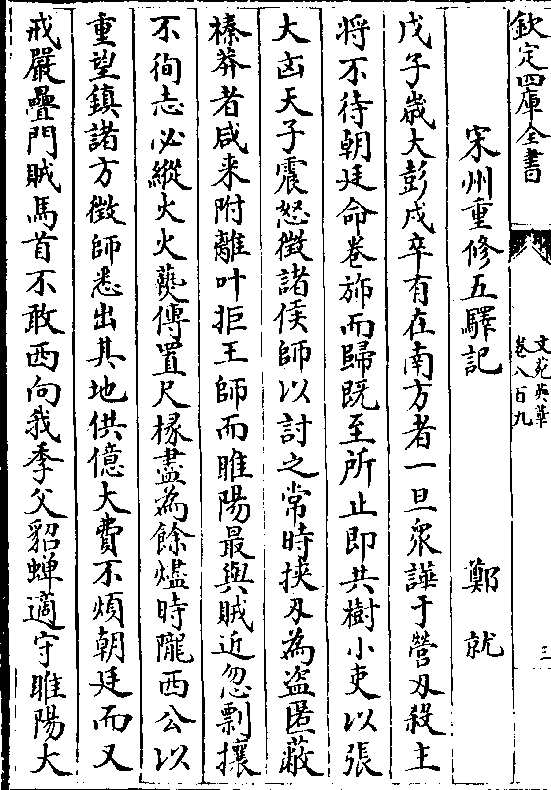 欽定四庫全書
文苑英華
卷八百九
三
宋州重修五驛記 鄭就
戊子歲大彭戍卒有在南方者一旦衆譁于營刃殺主
将不待朝廷命卷斾而歸既至所止即共樹小吏以張
大凶天子震怒徵諸侯師以討之常時挟刃為盗匿蔽
榛莽者咸来附離叶拒王師而睢陽最與賊近忽剽攘
不徇志必縱火火爇傳置尺椽盡為餘燼時隴西公以
重望鎮諸方徵師悉出其地供億大費不煩朝廷而又
戒嚴壘門賊馬首不敢西向我季父貂蝉適守睢陽大